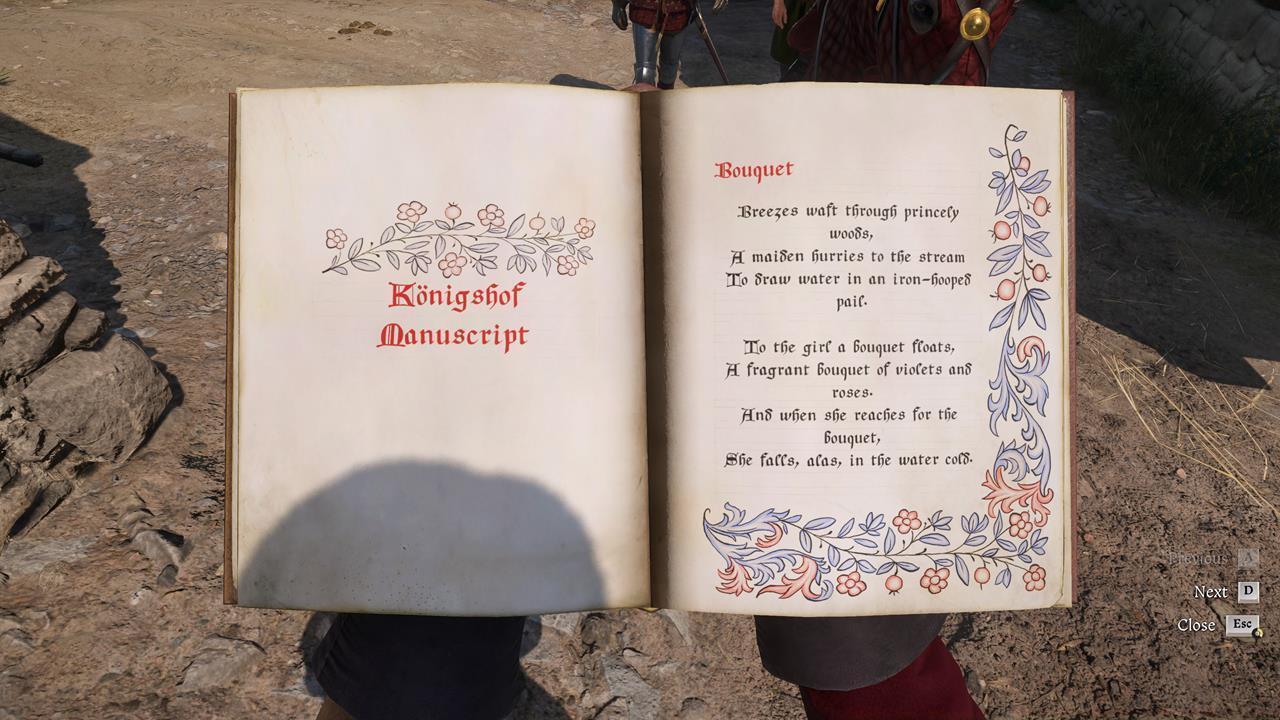 Königshof
Manuscript
Bouquet
Breezes waft through princely
woods,
A maiden hurries to the stream
To draw water in an iron-hooped
pail.
To the girl a bouquet floats,
A fragrant bouquet of violets and
roses.
And when she reaches for the
bouquet,
She falls, alas, in the water cold.
Previous A
Next D
Close Esc